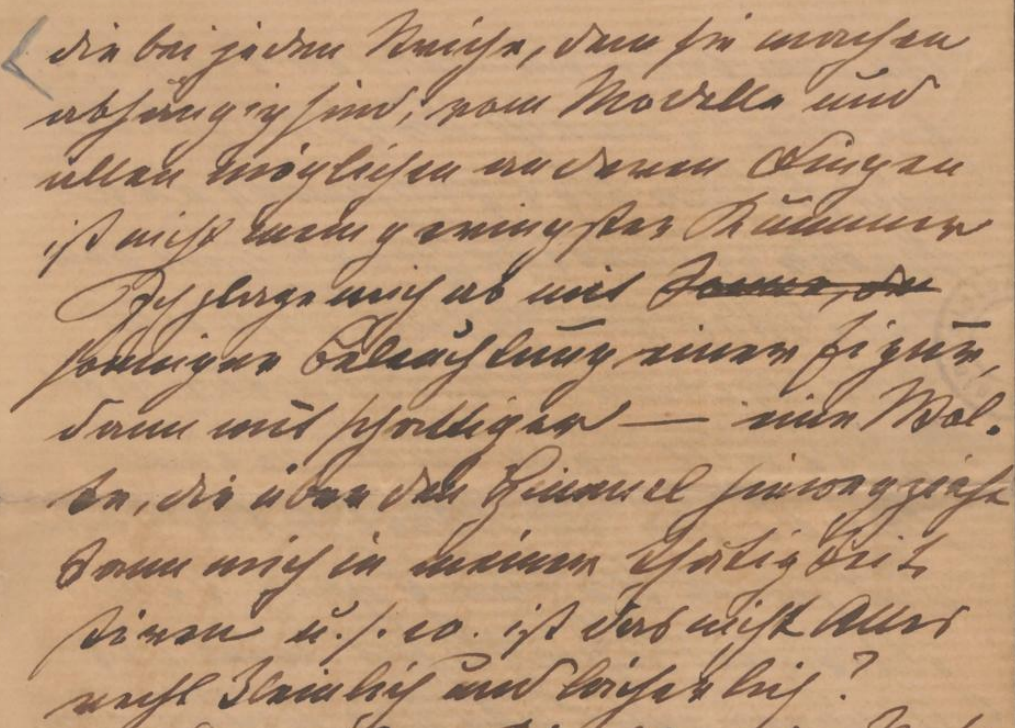 die bei jedem Striche, den sie machen
abhängig sind, vom Modelle und
allen möglichen anderen Dingen
ist nicht mein geringster Kummer
Ich plage mich ab mit Sonne, der
sonniger Beleuchtung einer Figur,
dann mit schattiger — eine Wol-
ke, die über den Himmel hinwegzieht
kann mich in meiner Thätigkeit
stören u. s. w. ist das nicht Alles
recht kleinlich und lächerlich?